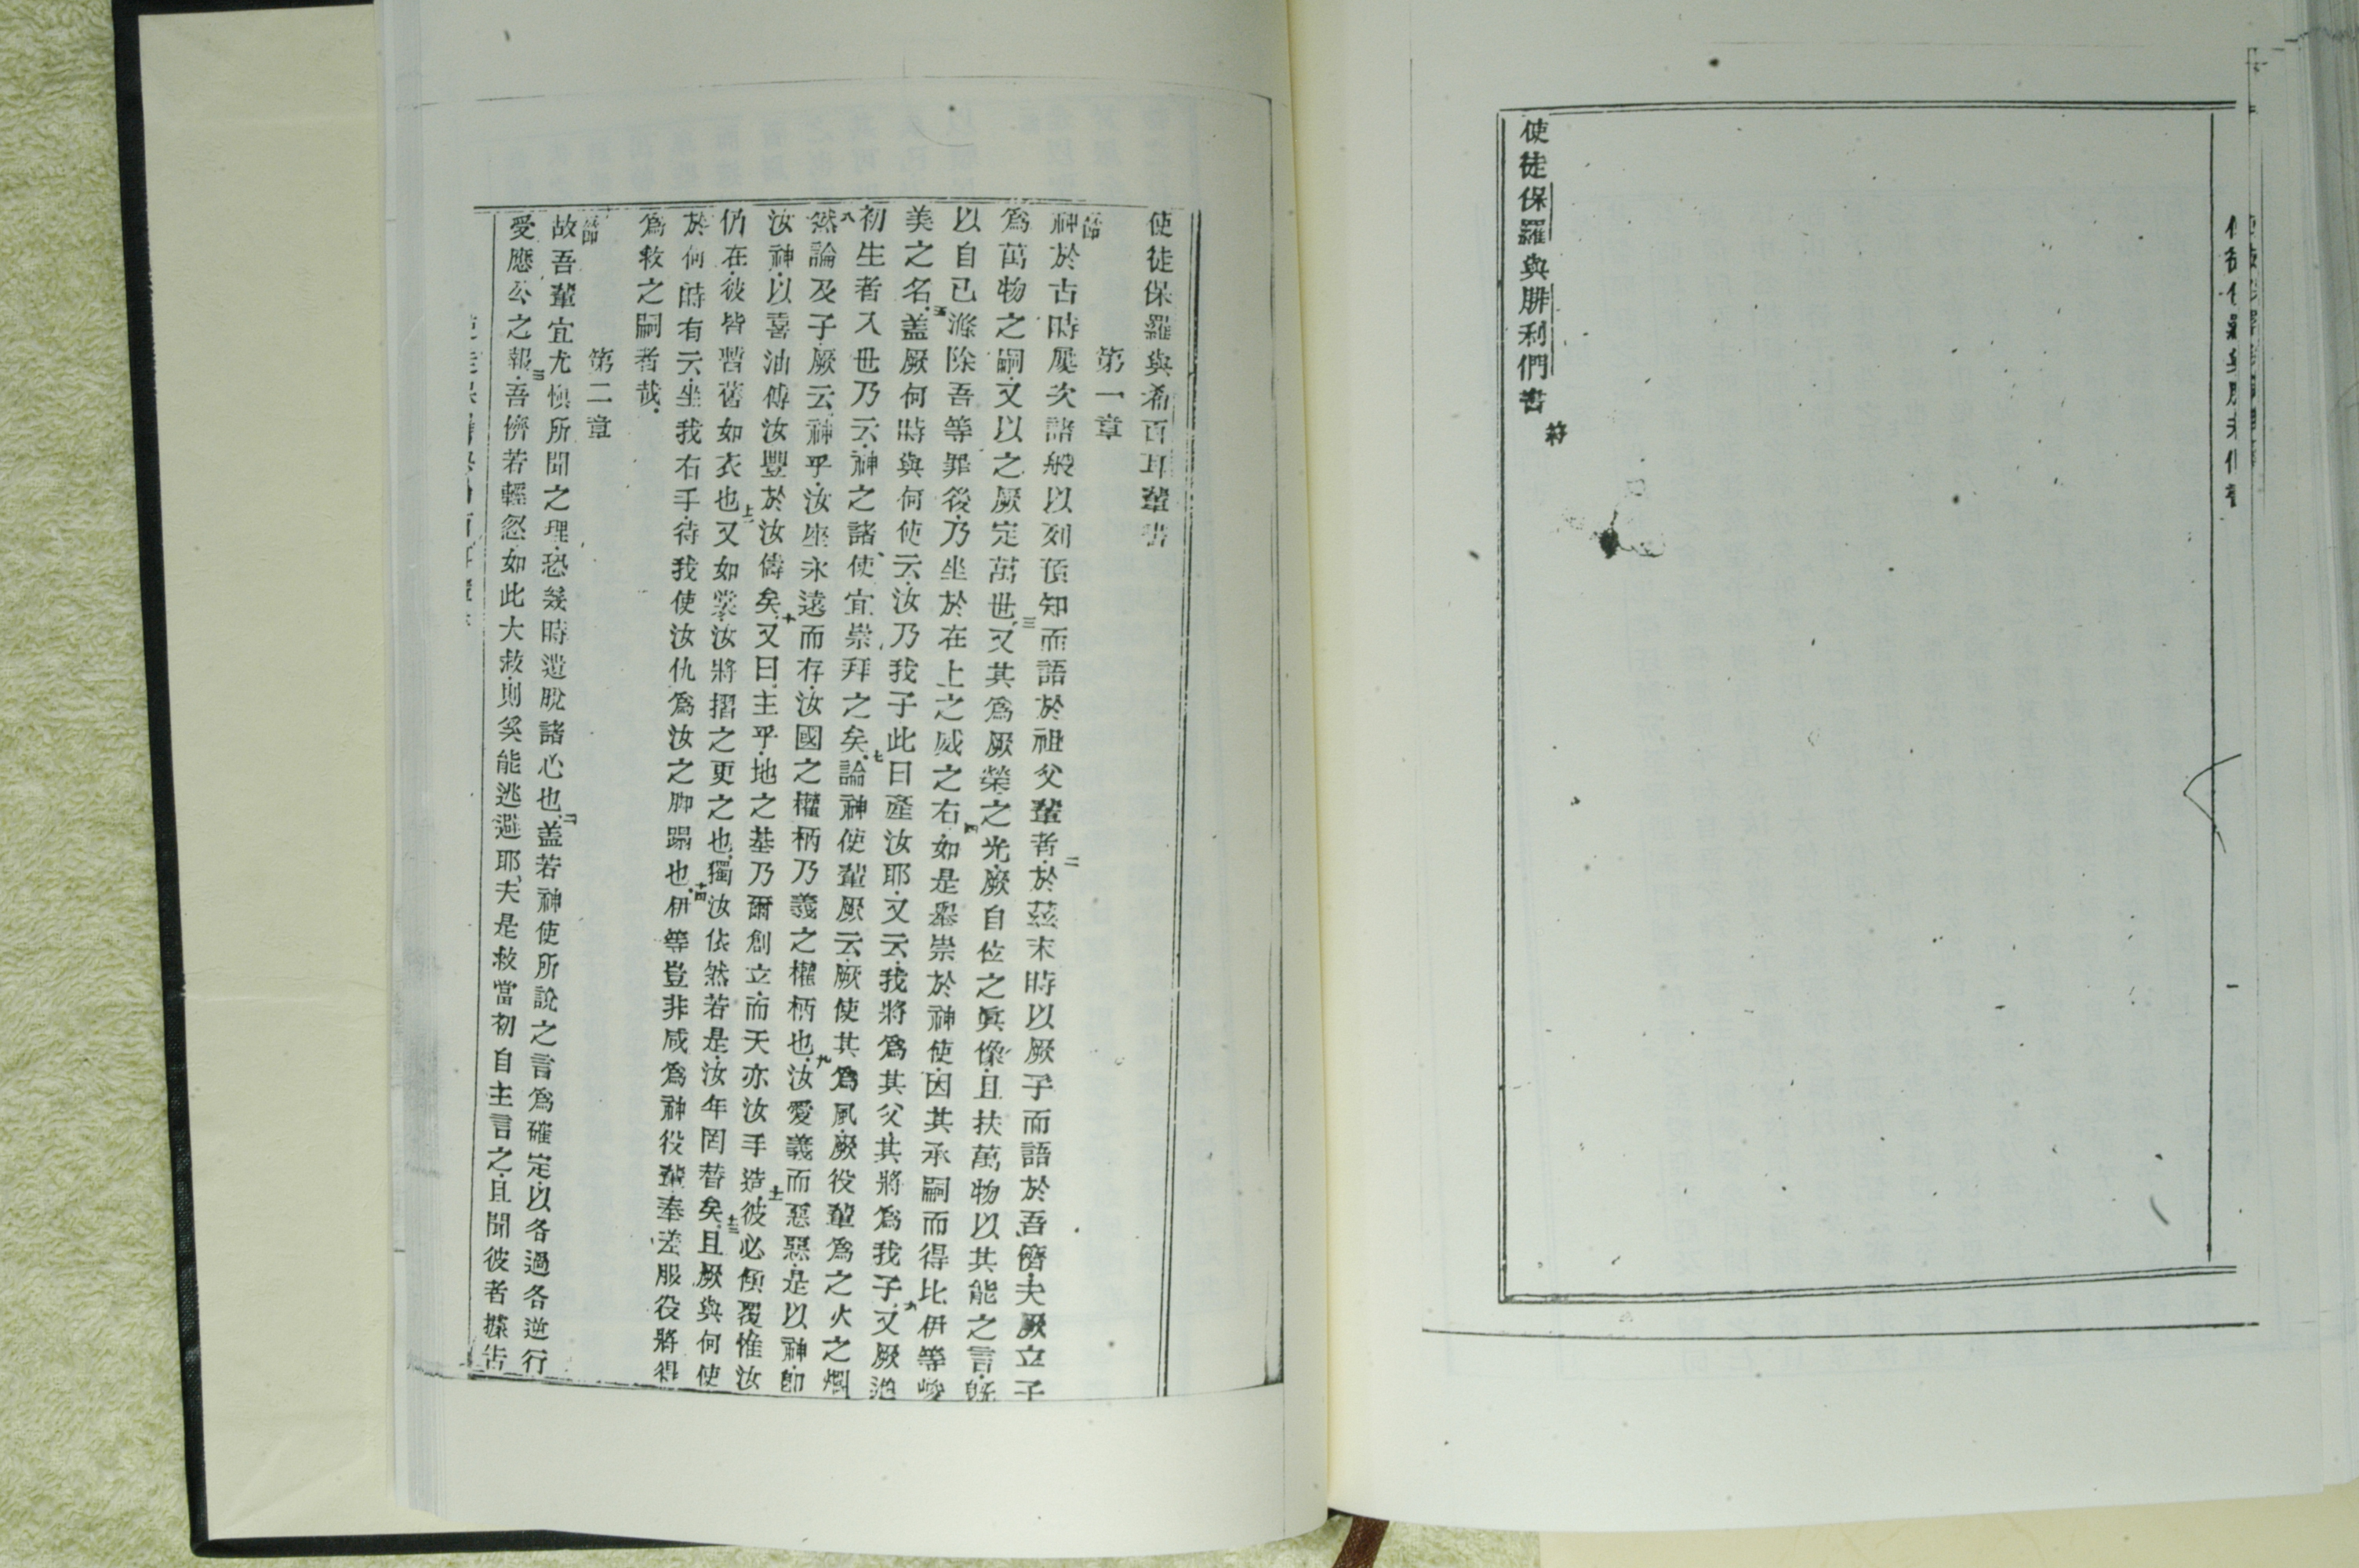 使徒保羅與腓利們書 終
使徒保羅與希百耳輩書
第一章
神於古時屢次諸般以列預知而語於祖父輩者·二於茲末時以厥子而語於吾儕·夫厥立子
爲萬物之嗣·又以之厥定萬世·三又其爲厥榮之光·厥自位之眞像·且扶萬物以其能之言·旣
以自己滌除吾等罪後·乃坐於在上之威之右·四如是舉崇於神使·因其承嗣而得比伊等峻
美之名·五蓋厥何時與何使云·汝乃我子此日產汝耶·又云·我將爲其父·其將爲我子·六又厥
初生者入世乃云·神之諸使宜崇拜之矣·七論神使輩厥云·厥使其爲風·厥役輩爲之火之爓
八然論及子·厥云·神乎·汝座永遠而存·汝國之權柄乃義之權柄也·九汝愛義而惡惡·是以神·卽
汝神·以喜油傅汝豐於汝儔矣·十又曰·主乎·地之基乃爾創立·而天亦汝手造·十一彼必傾覆惟汝
仍在·彼皆暫舊如衣也·十二又如裳·汝將摺之更之也·獨汝依然若是·汝年罔替矣·十三且厥與何使
於何時有云·坐我右手·待我使汝仇爲汝之脚踢也·十四伊等豈非咸爲神役輩·奉差服役將得
爲救之嗣者哉·
第二章
一節故吾輩宜尤愼所聞之理·恐幾時遺脫諸心也·二蓋若神使所說之言爲確定·以各過各逆行
受應公之報·三吾儕若輕忽如此大救·則奚能逃避耶·夫是救當初自主言之·且聞彼者據告